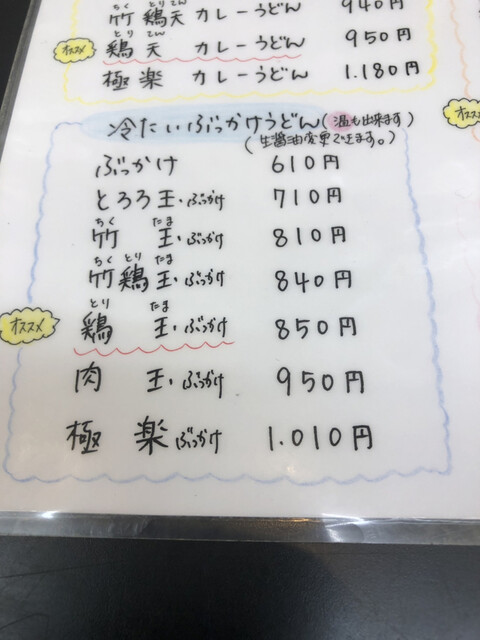 ちく とりてん
竹 鶏天 カレーうどん 940円
とり てん
オススメ 鶏 天 カレーうどん 950円
極楽 カレーうどん 1.180円
冷たいぶっかけうどん(温も出来ます)
(生醤油変更できます。)
ぶっかけ 610円
とろろ玉・ぶっかけ 710円
ちく たま
竹 玉・ぶっかけ 810円
ちく とり たま
竹 鶏 玉・ぶっかけ 840円
とり たま
オススメ 鶏 玉・ぶっかけ 850円
肉 玉・ぶっかけ 950円
極 楽 ぶっかけ 1.010円
オスス